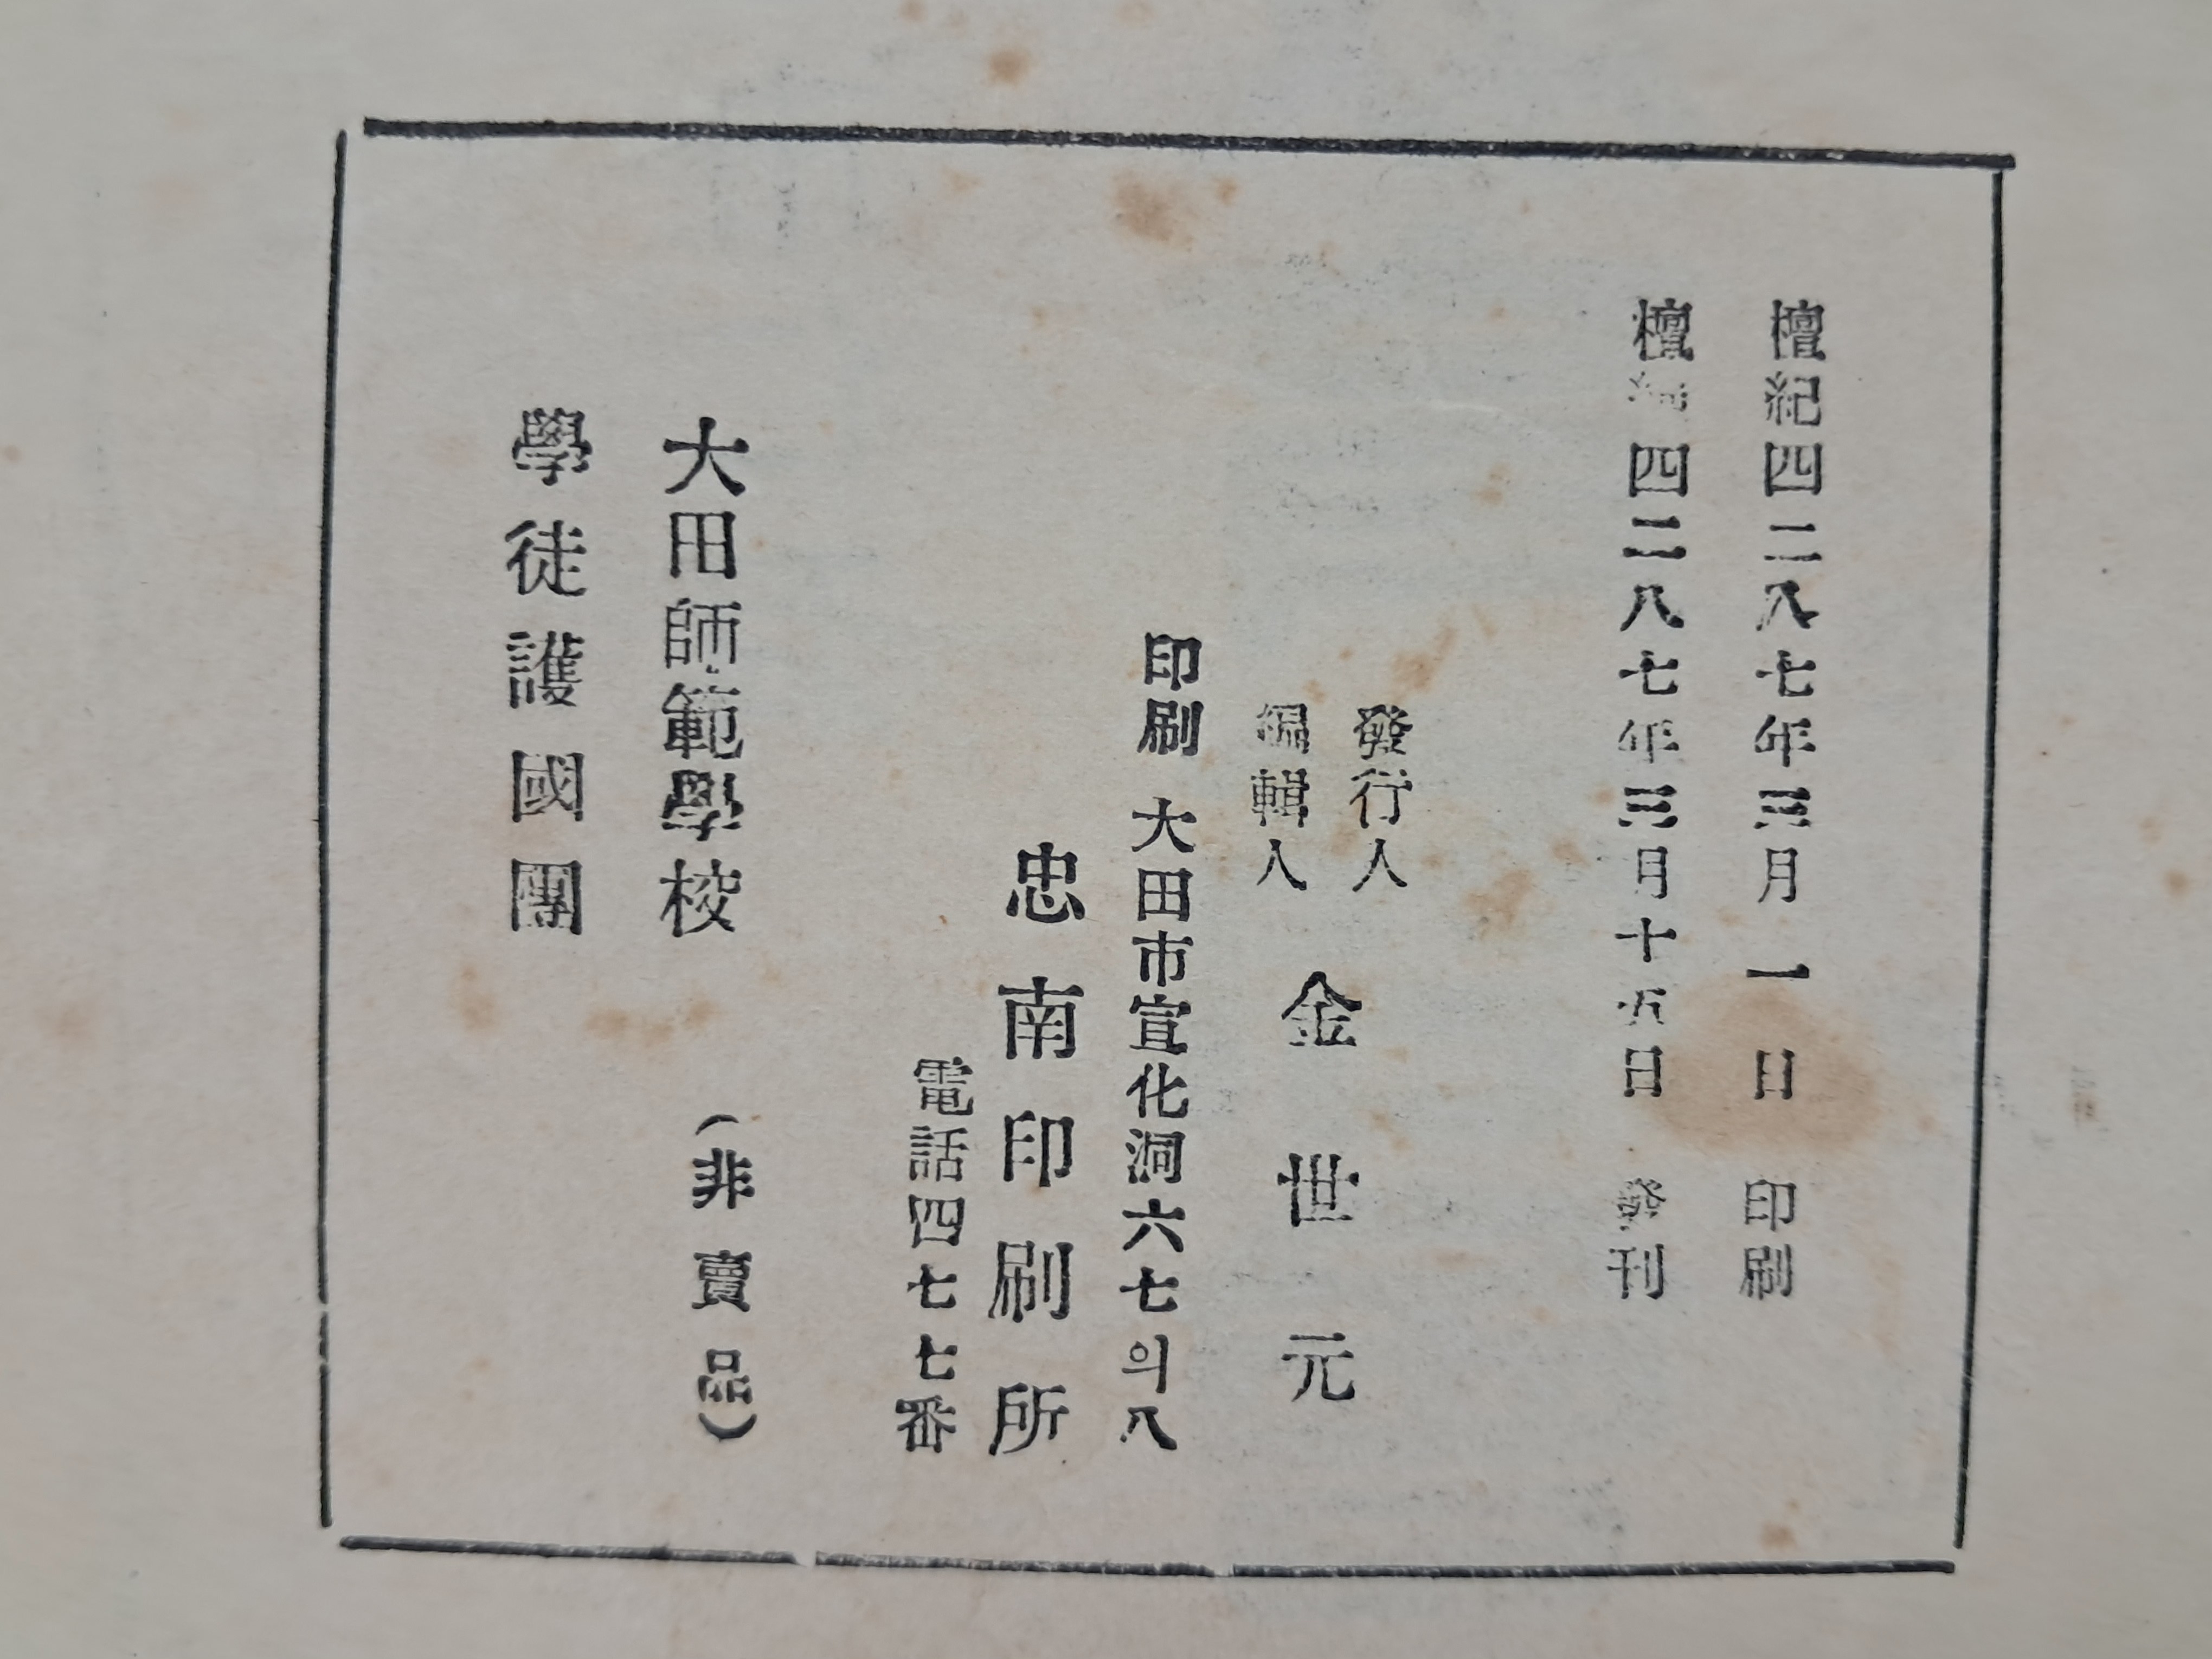 檀紀四二八七年三月一日 印刷
檀紀四二八七年三月十五日 發刊
發行人
編輯人
金世元
印刷 大田市宣化洞六七의八
忠南印刷所
電話四七七番
大田師範學校
(非賣品)
學徒護國團